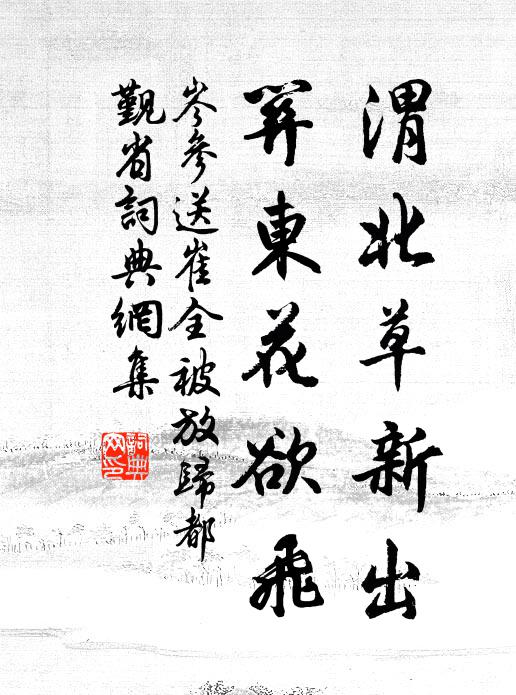 渭北草新出
關東花欲飛
岑參送崔全被放歸都
覲省詞典網集
詞典
网印